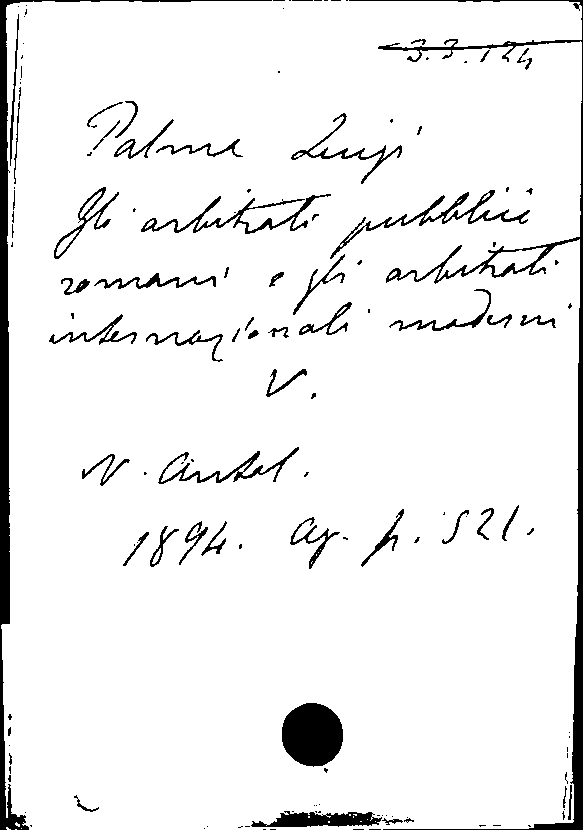 3.3.124
Palma Luigi
Gli arbitrati pubblici
romani e gli arbitrati
internazionali moderni
V.
N. Antol.
1894. Ag. p. 521.